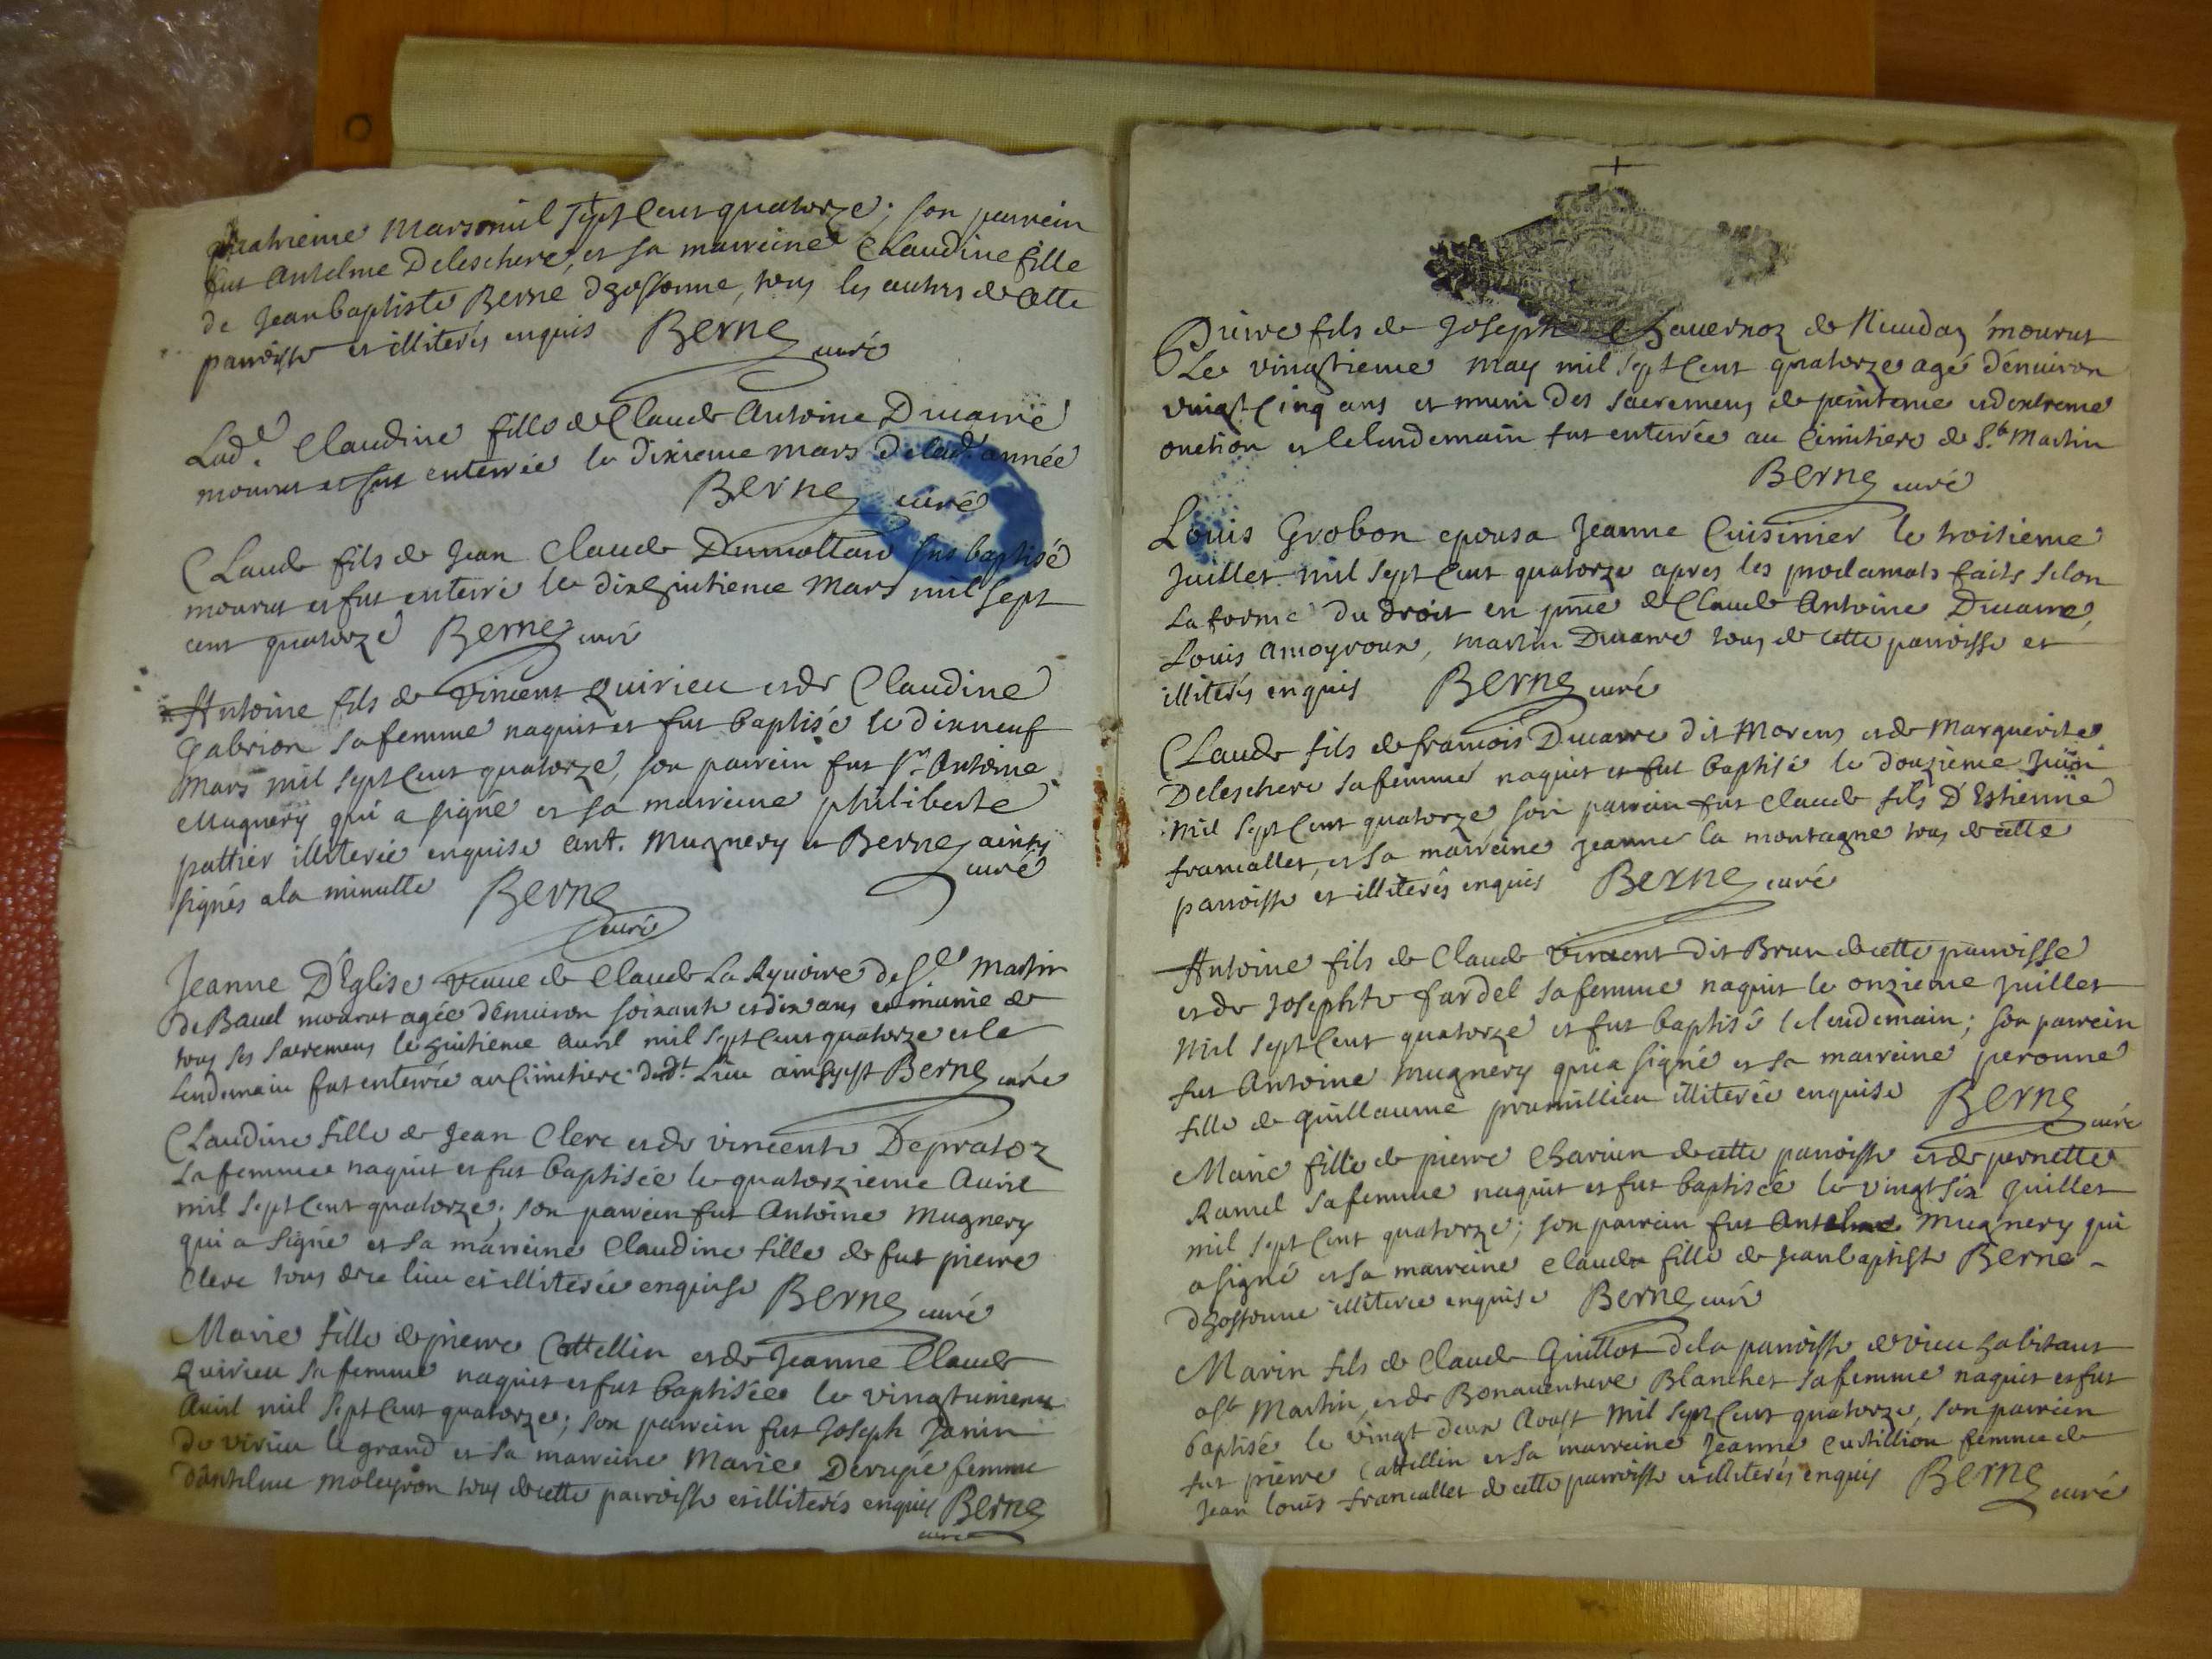 quatrieme Mars mil sept Cent quatorze; son parrein
fut Antelme Deleschere, et sa marreine Claudine fille
de Jean baptiste Berne d'hostonne, tous les autres de Cette
parroisse et illiterés enquis Berne curé
Lad.e Claudine fille de Claude Antoine Ducarré
mourut et fut enterrée le dixieme mars de lad.e année
Berne curé
Claude fils de Jean Claude Dumollard fus baptisé
mourut et fut enterré le dixhuitieme Mars mil sept
cent quatorze Berne curé
Antoine fils de Vincent Quirieu et de Claudine
Gabrion sa femme naquit et fut baptisé le dixneuf
Mars mil sept Cent quatorze, son parrein fut Sr. Antoine
Mugnery qui a signé et sa marreine philiberte
pattier illiterée enquise ant. Mugnery et Berne ainsy
signés a la minutte Berne curé
curé
Jeanne D'Eglise veuve de Claude La Ryuoire de St. Martin
de Bauel mourut agée d'enuiron soixante et dix ans et munie de
tous ses sacremens le huitieme Auril mil sept Cent quatorze et le
Lendemain fut enterrée au Cimitiere dudt. Lieu ainsy est Berne curé
Claudine fille de Jean Clerc et de vincente Depratoz
sa femme naquit et fut baptisée le quatorzieme Auril
mil sept Cent quatorze; son parrein fut Antoine Mugnery
qui a signé et sa marreine Claudine fille de fut pierre
Clerc tous de ce lieu et illiterée enquise Berne curé
Marie fille de pierre Cattellin et de Jeanne Claude
Quirieu sa femme naquit et fut baptisée le vingtunieme
Auril mil sept Cent quatorze; son parrein fut Joseph Janin
de virieu le grand et sa marreine Marie Derupé femme
d'antelme moleyron tous de cette parroisse et illiterés enquis Berne
curé
pierre fils de Joseph Chauernoz de Muudaz mourut
Le vingtieme may mil sept Cent quatorze agé d'enuiron
vingt Cinq ans et muni des sacremens de penitence et d'extreme
onction et le lendemain fut enterrée au Cimitiere de St. Martin
Berne curé
Louis Grobon epousa Jeanne Cuisinier le troisieme
Juillet mil sept Cent quatorze apres les proclamats faits selon
La forme du droit en pnce de Claude Antoine Ducarre,
Louis Amoyroux, martin Ducarre tous de cette parroisse et
illiterés enquis Berne curé
Claude fils de francois Ducarre dit Morens et de Marguerite
Deleschere sa femme naquit et fut baptisé le douzieme Juin
mil sept Cent quatorze son parrein fut Claude fils D'Estienne
francallet, et sa marreine Jeanne la montagne tous de cette
parroisse et illiterés enquis Berne curé
Antoine fils de Claude Vincent dit Brun de cette parroisse
et de Josephte fardel sa femme naquit le onzieme Juillet
Mil sept Cent quatorze et fut baptisé le lendemain; son parrein
fut Antoine Mugnery qui a signé et sa marreine peronne
fille de guillaume prumillieu illiterée enquise Berne curé
Marie fille de pierre Charien de cette parroisse et de pernette
Ramel sa femme naquit et fut baptisée le vingt six Juillet
mil sept Cent quatorze; son parrein fut Antelme Mugnery qui
a signé et sa marreine Claude fille de Jean baptiste Berne
d'hostonne illiterée enquise Berne curé
Marin fils de Claude Guillot de la parroisse de vieu habitant
a St Martin, et de Bonaventure Blanchet sa femme naquit et fut
baptisé le vingt deux Aoust mil sept Cent quatorze, son parrein
fut pierre Cattellin et sa marreine Jeanne Curtillion femme de
Jean louis francallet de cette parroisse et illiterés enquis Berne curé